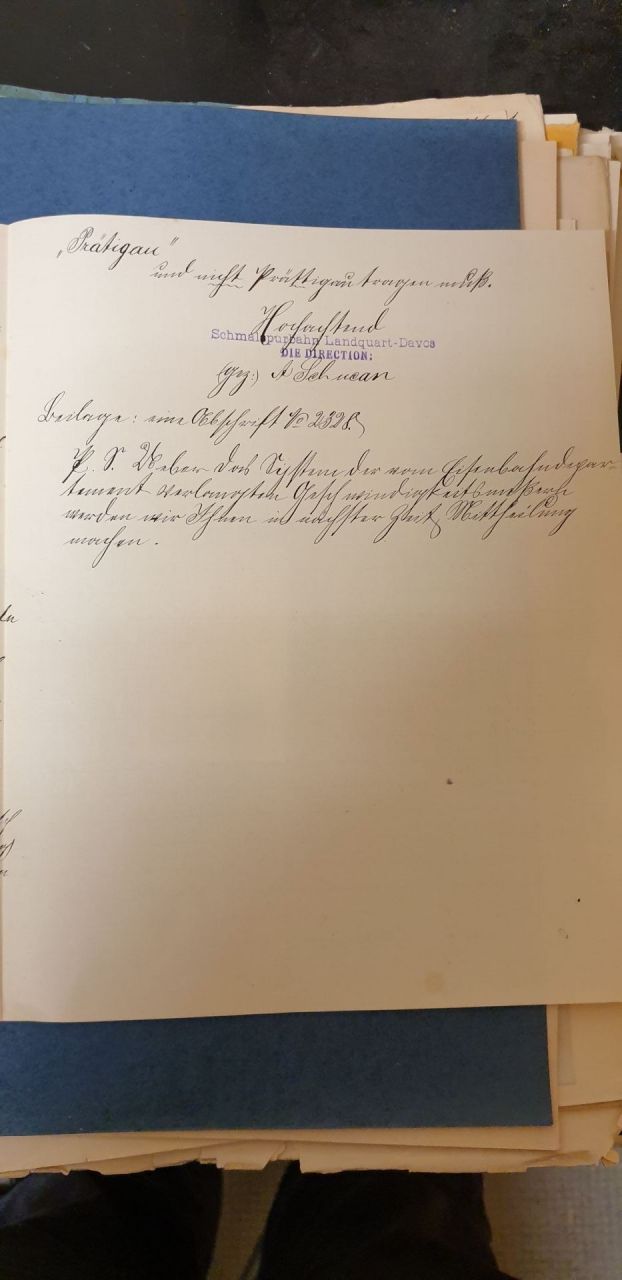 „Prätigau"
und nicht Prättigau tragen muß.
Hochachtend
Schmalspurbahn Landquart-Davos
DIE DIRECTION:
(gez:) A Schucan
Beilage: eine Abschrift № 2328
P. S. Ueber das System der vom Eisenbahndepar-
tement verlangten Geschwindigkeitsmeßern
werden wir Ihnen in nächster Zeit Mittheilung
machen.